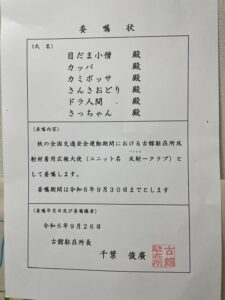 委嘱状
(氏 名)
目だま小僧 殿
カッパ 殿
カミボッサ 殿
さんさおどり 殿
ドラ人間 殿
さっちゃん 殿
(委嘱内容)
秋の全国交通安全運動期間における古館駐在所反
射材着用広報大使(ユニット名 反射ークラブ)とし
て委嘱します。
委嘱期間は令和6年9月30日までとします
(委嘱年月日及び委嘱権者)
令和6年9月26日
古館駐在所長
千葉 俊廣
古館
駐在所